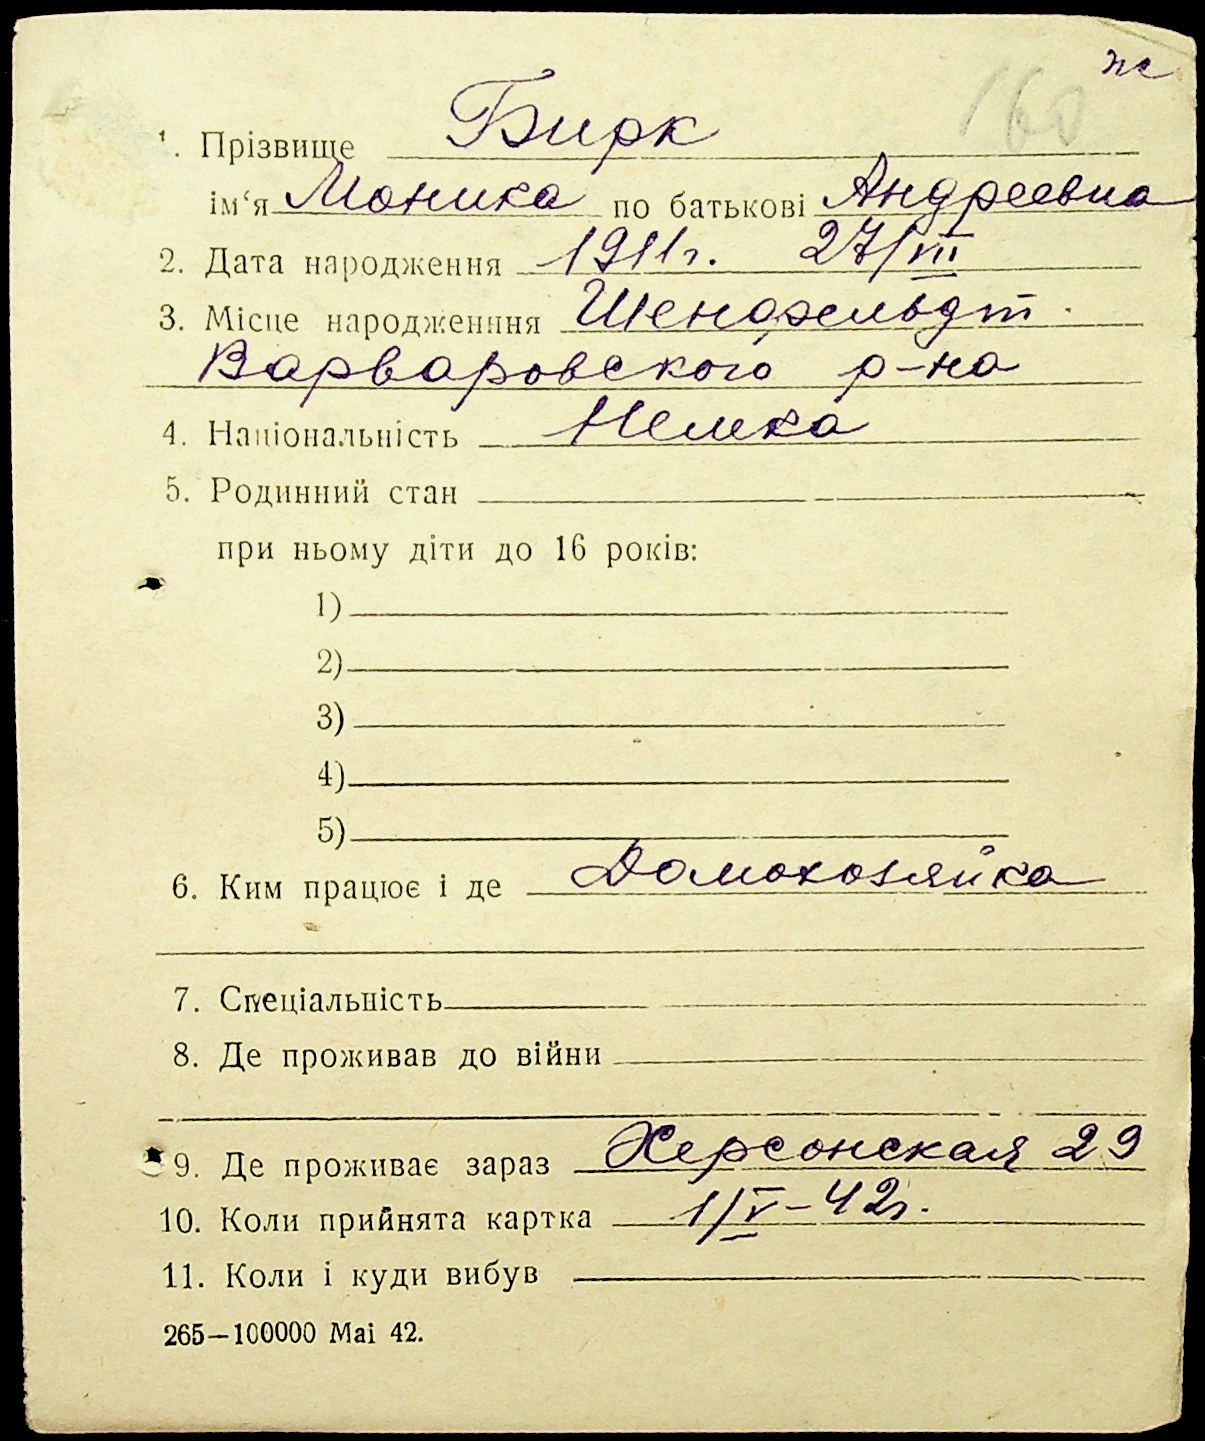 ж
160
1. Прізвище Бирк
ім‘я Моника по батькові Андреевна
2. Дата народження 1911г. 27/VII
3. Місце народженння Шенфельдт.
Варваровского р-на
4. Національність Немка
5. Родинний стан
при ньому діти до 16 років:
1)
2)
3)
4)
5)
6. Ким працює і де Домохозяйка
7. Спеціальність
8. Де проживав до війни
9. Де проживає зараз Херсонская 29
10. Коли прийнята картка 1/V-42г.
11. Коли і куди вибув
265—100000 Mai 42.